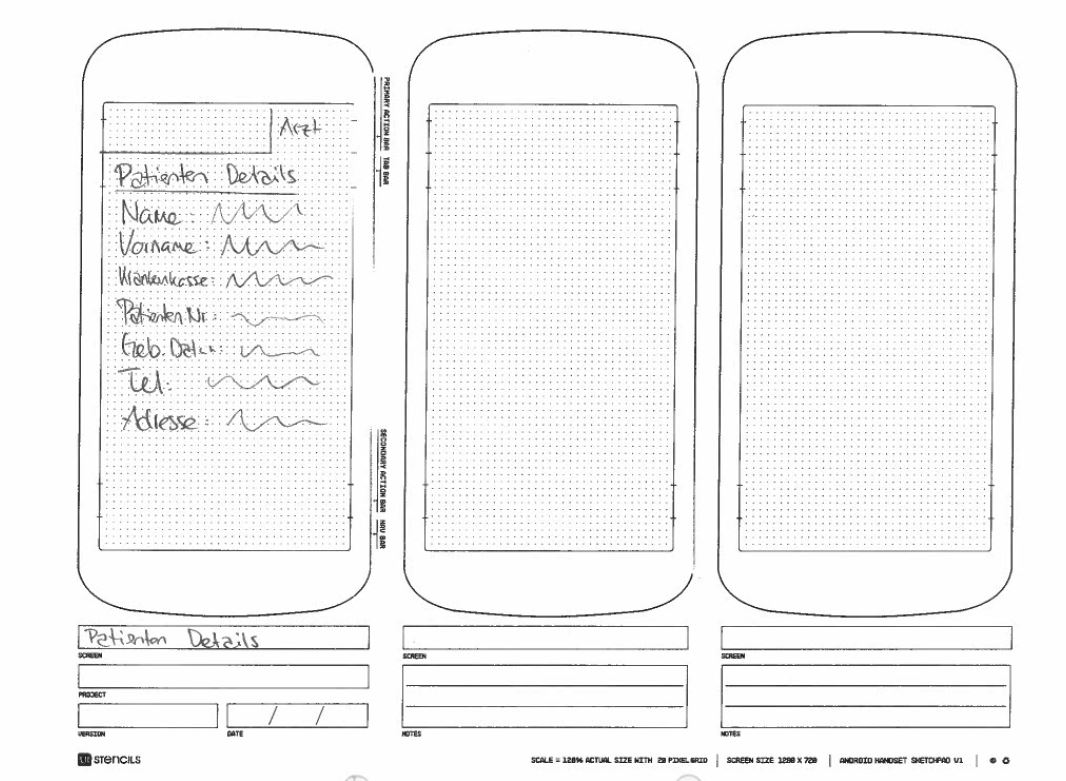 Arzt
Patienten Details
Name:
Vorname:
Krankenkasse:
Patienten Nr:
Geb. Datum:
Tel:
Adresse:
PRIMARY ACTION BAR TAB BAR
SECONDARY ACTION BAR NAV BAR
Patienten Details
SCREEN
SCREEN
SCREEN
PROJECT
VERSION
DATE
/ /
NOTES
NOTES
UI STENCILS
SCALE = 128% ACTUAL SIZE WITH 20 PIXEL GRID | SCREEN SIZE 1280 X 720 | ANDROID HANDSET SKETCHPAD V1